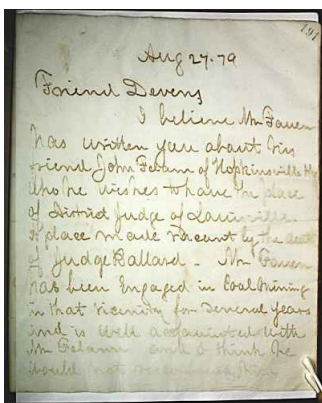 191
Aug 27. 79
Friend Devens
I believe Mr Fauen
has written you about his
friend John Feland of Hopkinsville Ky
who he wishes to have the place
of District Judge of Louisville
a place made vacant by the death
of Judge Ballard. Mr Fauen
has been Engaged in Coal Mining
in that vicinity for several years
and is well acquainted with
Mr Feland and I think he
would not